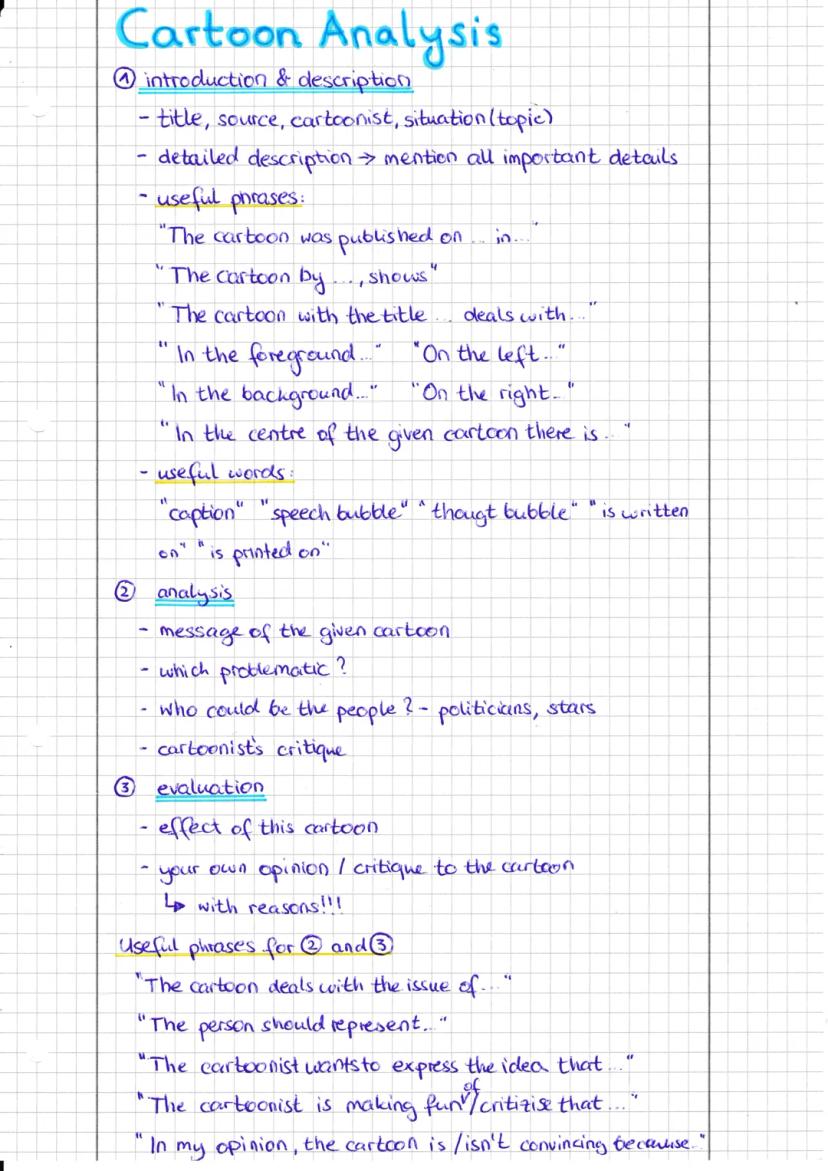 Cartoon Analysis
① introduction & description
- title, source, cartoonist, situation (topic)
- detailed description → mention all important details
- useful phrases:
"The cartoon was published on ... in..."
"The cartoon by ..., shows"
"The cartoon with the title ... deals with..."
"In the foreground..." "On the left..."
"In the background..." "On the right..."
"In the centre of the given cartoon there is ..."
- useful words:
"caption" "speech bubble" "thougt bubble" "is written
on" "is printed on"
② analysis
- message of the given cartoon
- which problematic?
- who could be the people? - politicians, stars
- cartoonist's critique
③ evaluation
- effect of this cartoon
- your own opinion / critique to the cartoon
↳ with reasons!!!
Useful phrases for ② and ③
"The cartoon deals with the issue of..."
"The person should represent..."
"The cartoonist wants to express the idea that ..."
"The cartoonist is making fun of / critizise that ..."
"In my opinion, the cartoon is / isn't convincing because."